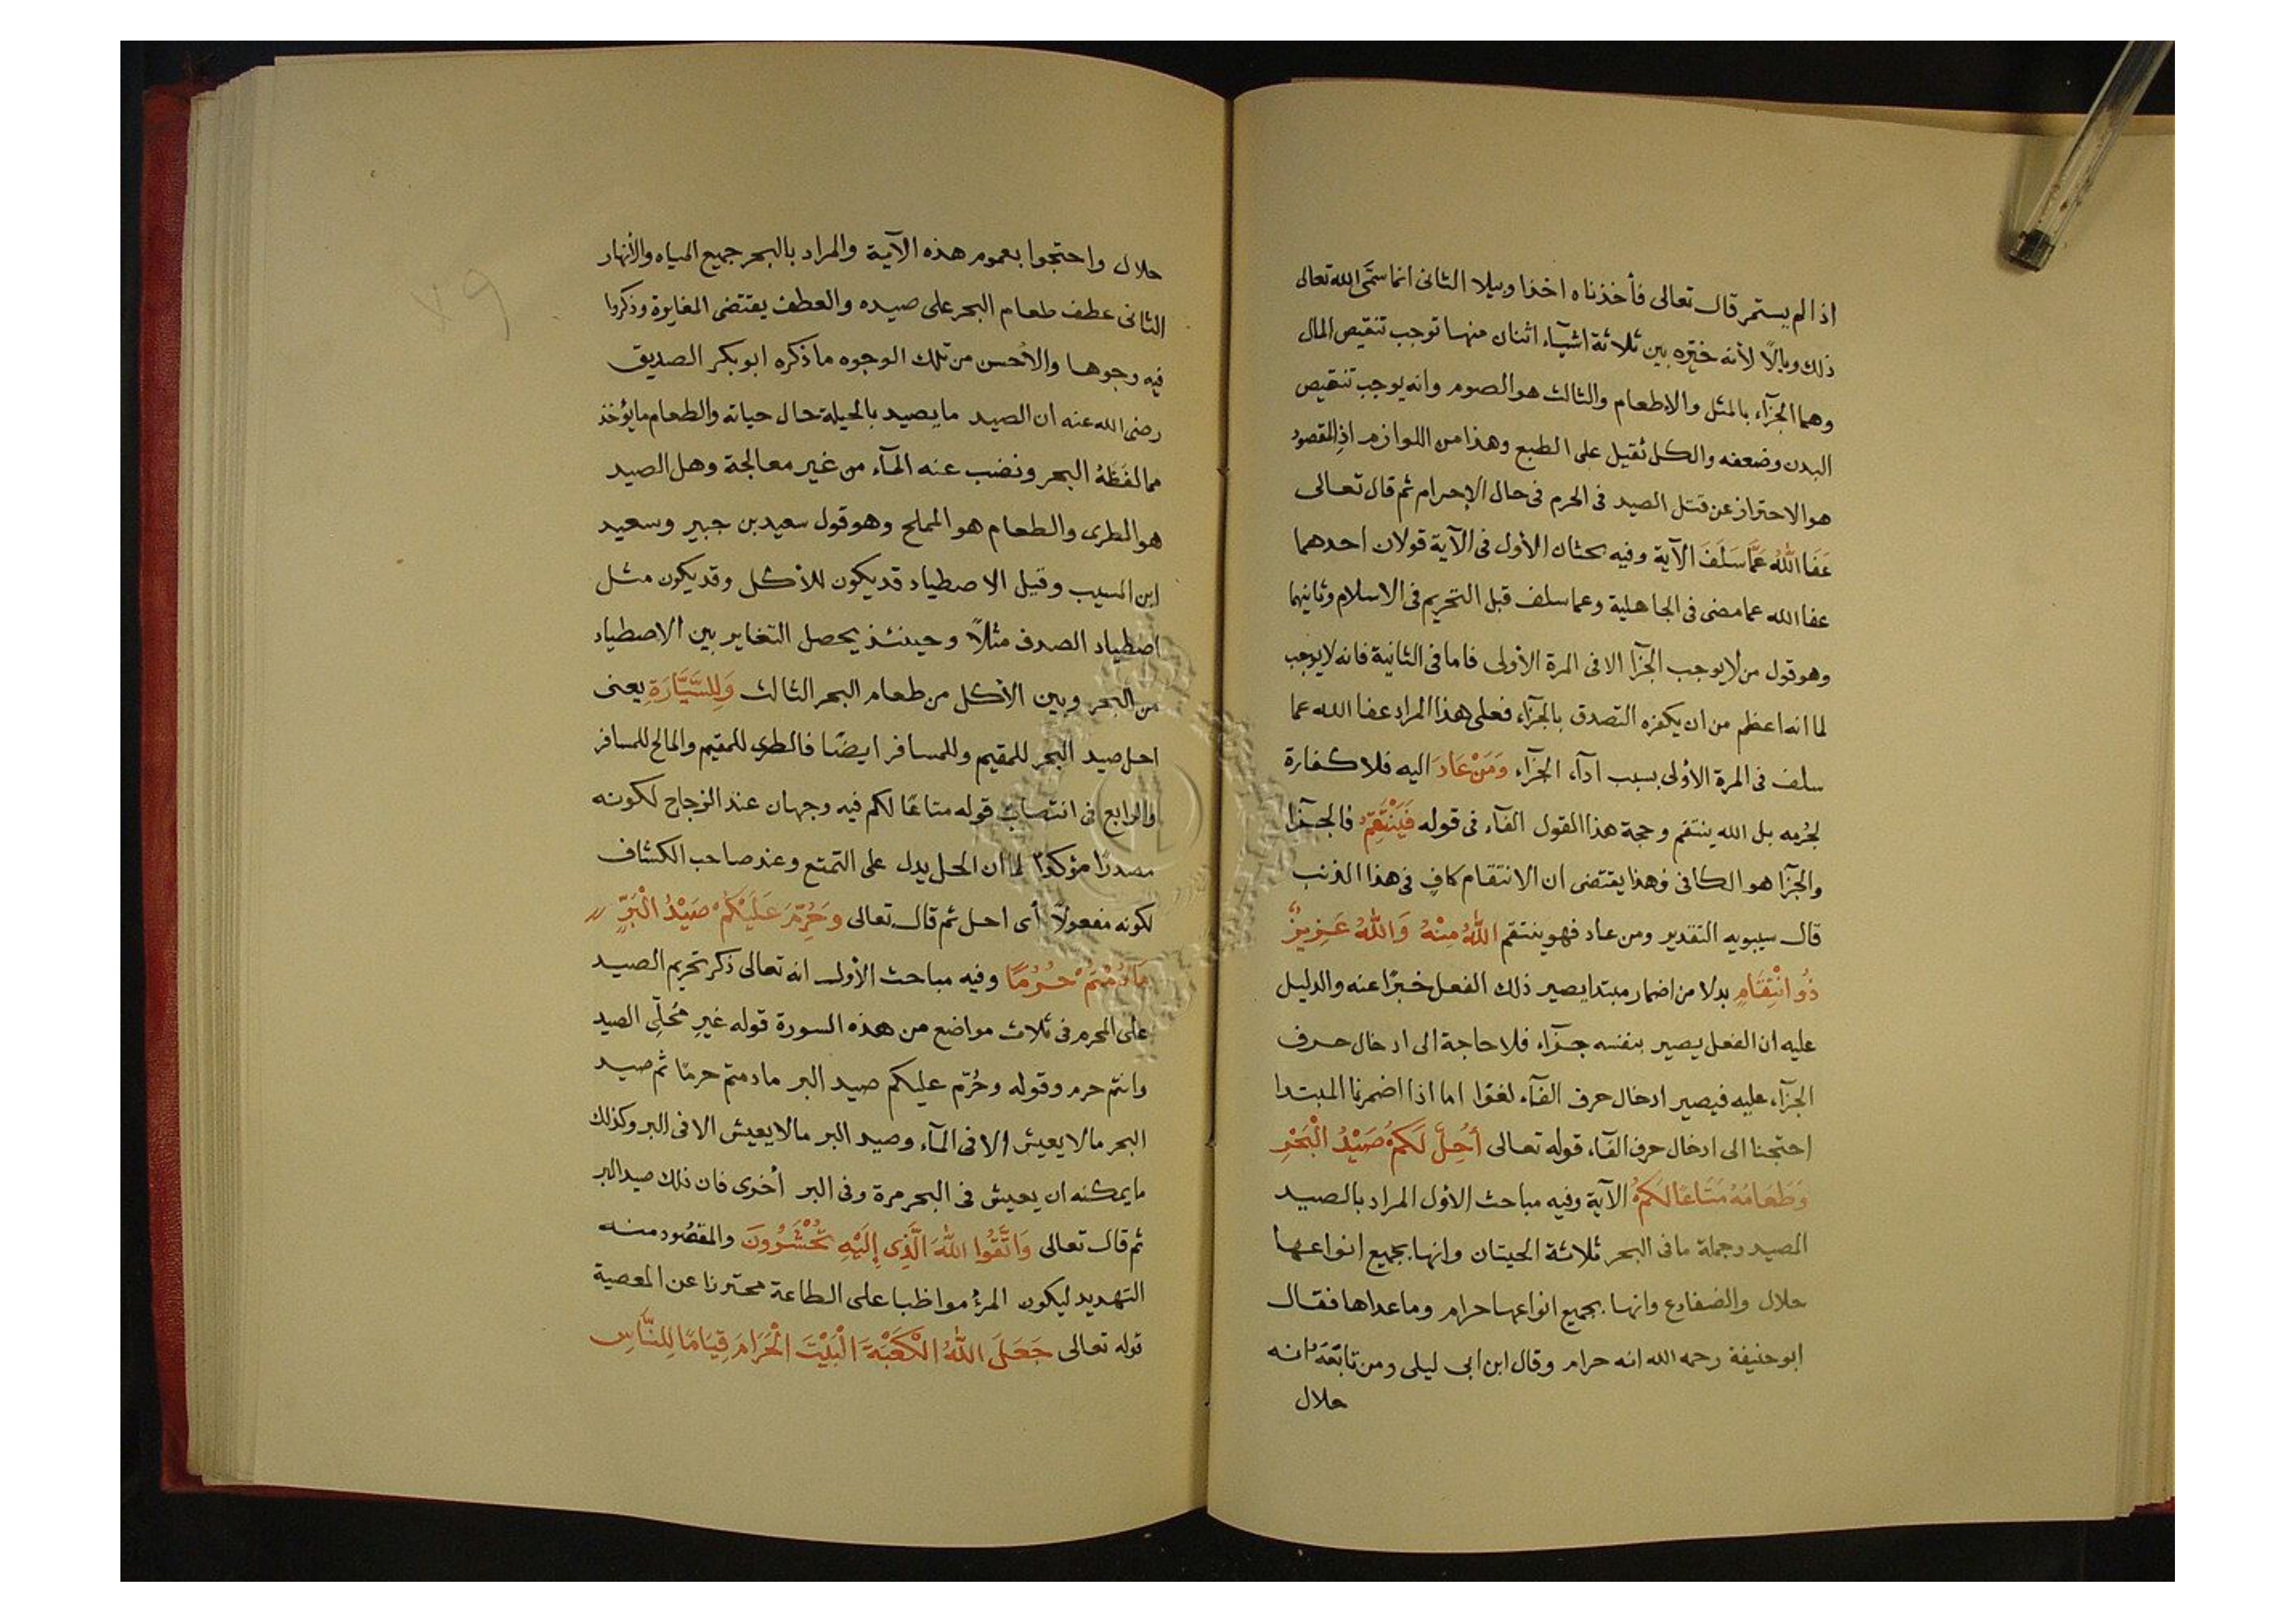 اذا لم يستمر قال تعالى فأخذناه اخذا وبيلا الثانى انما سمّى الله تعالى
ذلك وبالًا لأنه خيّره بين ثلاثة اشيآء اثنان منها توجب تنقيص المال
وهما الجزآء بالمثل والاطعام والثالث هو الصوم وانه يوجب تنقيص
البدن وضعفه والكل ثقيل على الطبع وهذا من اللوازم اذ المقصود
هو الاحتراز عن قتل الصيد فى الحرم فى حال الإحرام ثم قال تعالى
عَفَا اللهُ عَمَّا سَلَفَ الآية وفيه بحثان الأول فى الآية قولان احدهما
عفا الله عما مضى فى الجاهلية وعما سلف قبل التحريم فى الاسلام وثانيهما
وهو قول من لا يوجب الجزآ الا فى المرة الأولى فاما فى الثانية فانه لا يوجب
لما انه اعظم من ان يكفره التصدق بالجزآء فعلى هذا المراد عفا الله عما
سلف فى المرة الأولى بسبب ادآء الجزآء وَمَنْ عَادَ اليه فلا كفارة
لجُرمه بل الله ينتقم وحجة هذا القول الفآء فى قوله فَيَنْتَقِمُ فالجزآ
والجزآ هو الكافى وهذا يقتضى ان الانتقام كافٍ فى هذا الذنب
قال سيبويه التقدير ومن عاد فهو ينتقم اللهُ مِنْهُ وَاللهُ عَزِيزٌ
ذُو انْتِقَامٍ بدلا من اضمار مبتدا يصير ذلك الفعل خبرًا عنه والدليل
عليه ان الفعل يصير بنفسه جزآء فلا حاجة الى ادخال حرف
الجزآء عليه فيصير ادخال حرف الفآء لغوا اما اذا اضمرنا المبتدا
احتجنا الى ادخال حرف الفآء قوله تعالى أُحِلَّ لَكُمْ صَيْدُ الْبَحْرِ
وَطَعَامُهُ مَتَاعًا لَكُمْ الآية وفيه مباحث الأول المراد بالصيد
المصيد وجملة ما فى البحر ثلاثة الحيتان وانها بجميع انواعها
حلال والضفادع وانها بجميع انواعها حرام وما عداها فقال
ابو حنيفة رحمه الله انه حرام وقال ابن ابى ليلى ومن تابَعَهُ انه
حلال
حلال واحتجوا بعموم هذه الآية والمراد بالبحر جميع المياه والأنهار
الثانى عطف طعام البحر على صيده والعطف يقتضى المغايرة وذكروا
فيه وجوها والأحسن من تلك الوجوه ما ذكره ابو بكر الصديق
رضى الله عنه ان الصيد ما يصيد بالحيلة حال حياته والطعام ما يؤخذ
مما لفَظَهُ البحر ونضب عنه المآء من غير معالجة وهل الصيد
هو الطرى والطعام هو المملح وهو قول سعيد بن جبير وسعيد
ابن المسيب وقيل الاصطياد قد يكون للأكل وقد يكون مثل
اصطياد الصدف مثلًا وحينئذ يحصل التغاير بين الاصطياد
من البحر وبين الأكل من طعام البحر الثالث وَلِلسَّيَّارَةِ يعنى
احل صيد البحر للمقيم وللمسافر ايضًا فالطرى للمقيم والمالح للمسافر
والرابع فى انتصاب قوله متاعًا لكم فيه وجهان عند الزجاج لكونه
مصدرًا مؤكدًا لما ان الحل يدل على التمتع وعند صاحب الكشاف
لكونه مفعولًا أى احل ثم قال تعالى وَحُرِّمَ عَلَيْكُمْ صَيْدُ الْبَرِّ
مَا دُمْتُمْ حُرُمًا وفيه مباحث الأول انه تعالى ذكر تحريم الصيد
على المحرم فى ثلاث مواضع من هذه السورة قوله غيرِ مُحلّى الصيد
وانتم حرم وقوله وحُرّم عليكم صيد البر ما دمتم حرمًا ثم صيد
البحر ما لا يعيش الا فى المآء وصيد البر ما لا يعيش الا فى البر وكذلك
ما يمكنه ان يعيش فى البحر مرة وفى البر أخرى فان ذلك صيد البر
ثم قال تعالى وَاتَّقُوا اللهَ الَّذِى إِلَيْهِ تُحْشَرُونَ والمقصُود منه
التهديد ليكون المرؤ مواظبا على الطاعة محترزا عن المعصية
قوله تعالى جَعَلَ اللهُ الْكَعْبَةَ الْبَيْتَ الْحَرَامَ قِيَامًا لِلنَّاسِ